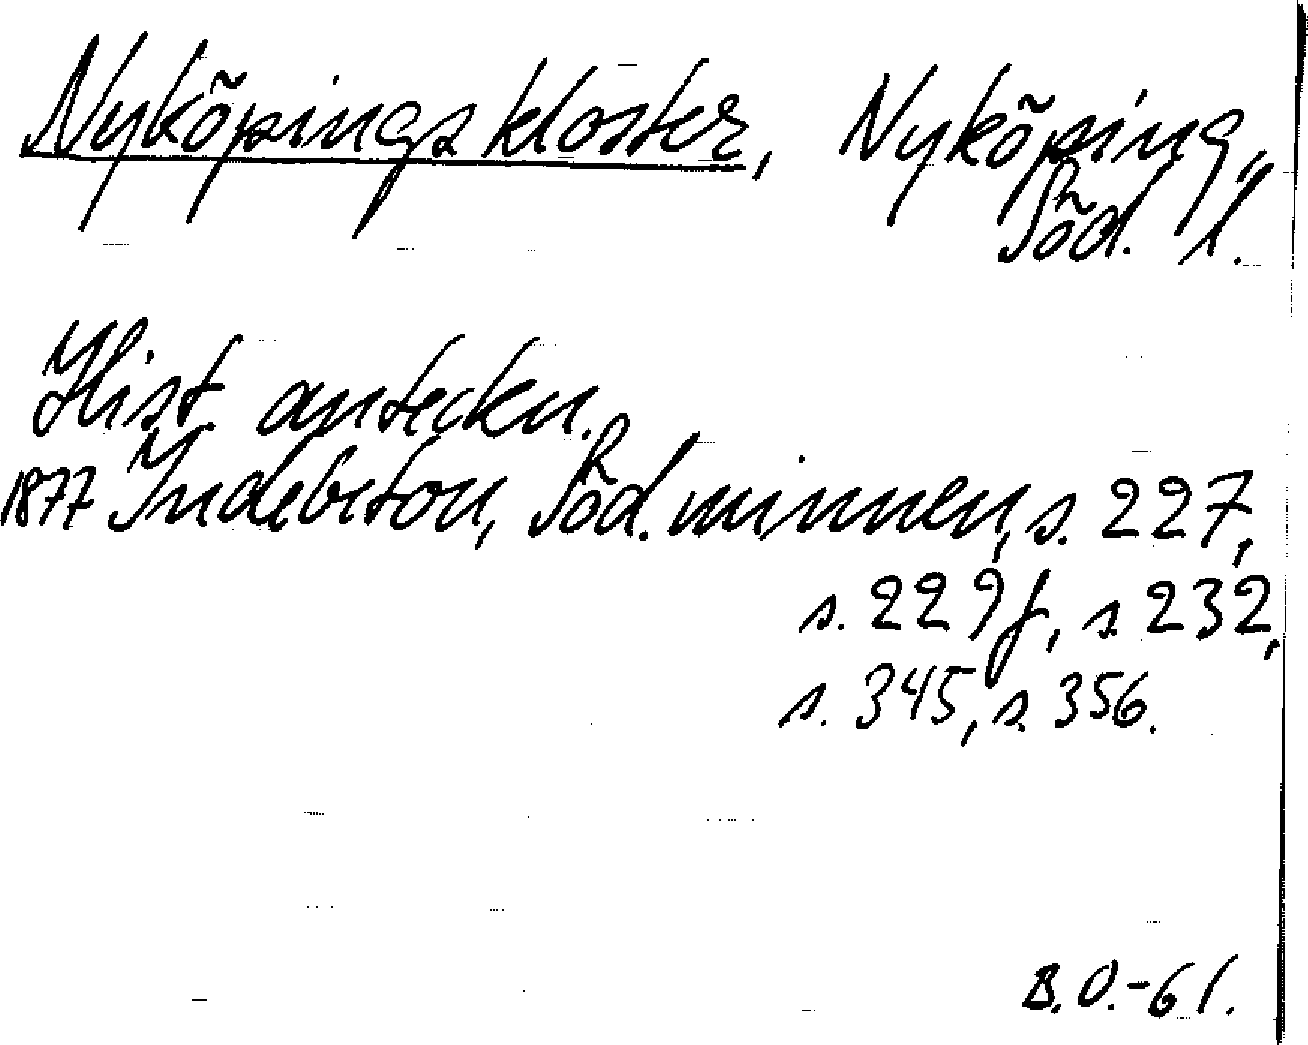 Nyköpings kloster, Nyköping,
Söd. l.
Hist. anteckn.
1877 Indebetou, Söd. minnen, s. 227,
s. 229 f, s 232,
s. 345, s. 356.
B.O.-61.